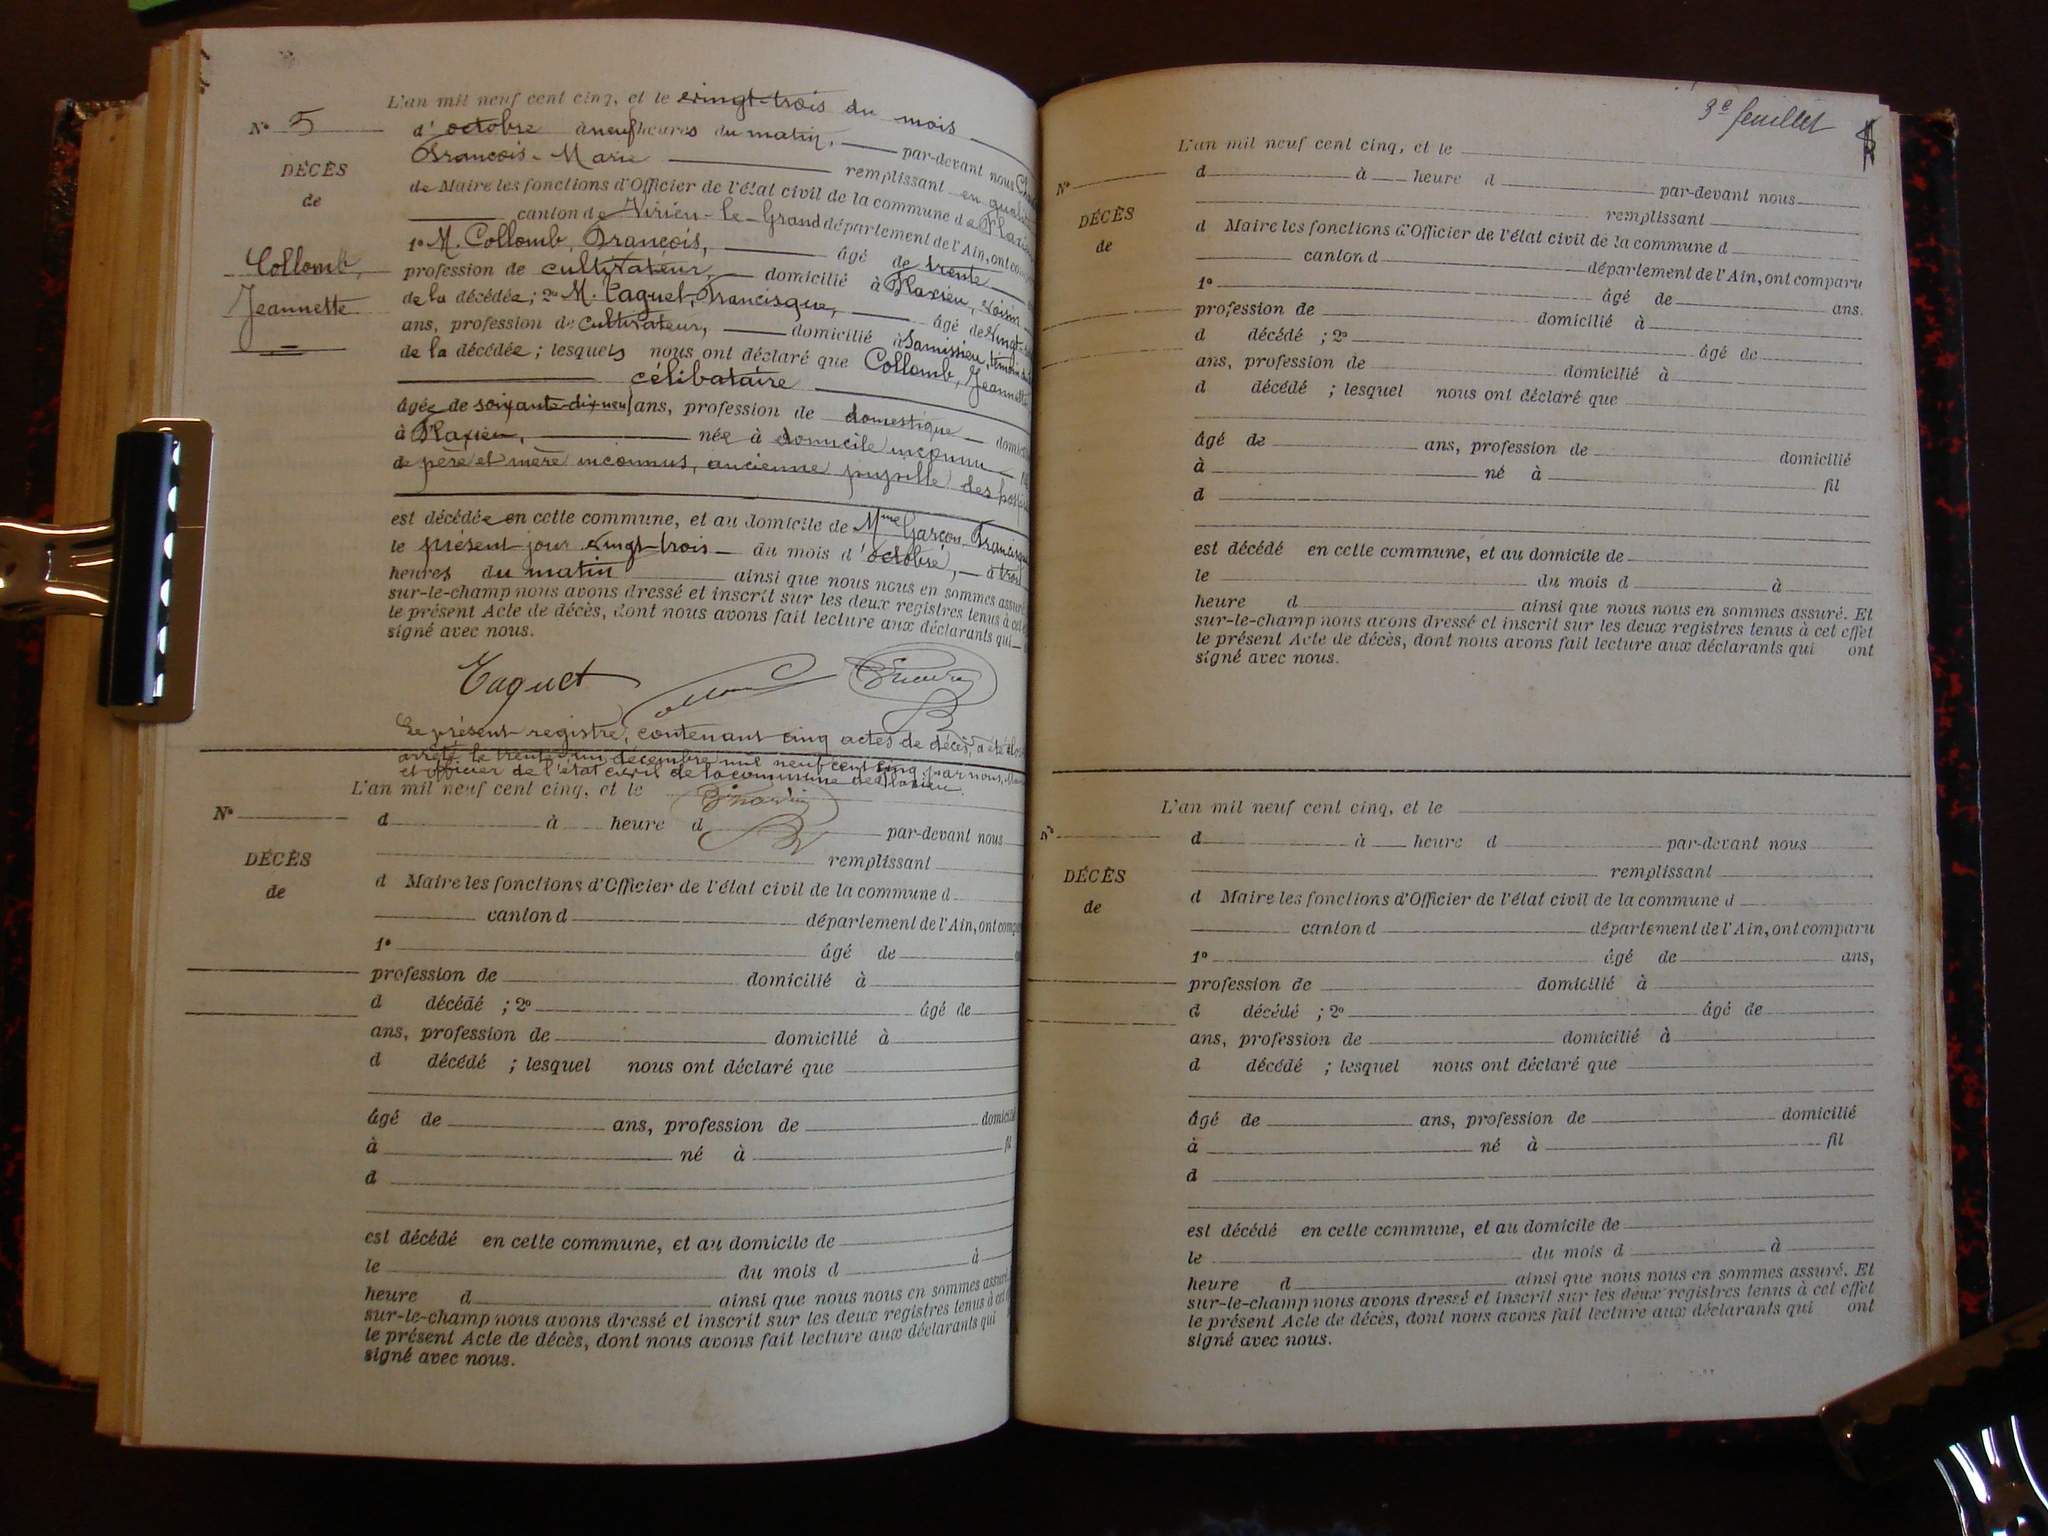 L'an mil neuf cent cinq, et le vingt-trois du mois
N° 5
d'octobre à neuf heures du matin, par-devant nous
François-Marie remplissant en qualité
DÉCÈS
de
de Maire les fonctions d'Officier de l'état civil de la commune de
canton de Virieu-le-Grand département de l'Ain, ont
1° M. Collomb, François, âgé de trente
Collomb,
Jeannette
profession de cultivateur, domicilié à Flaxieu, voisin
de la décédée; 2° M. Taguet, Francisque, âgé de vingt
ans, profession de cultivateur, domicilié à
de la décédée; lesquels nous ont déclaré que Collomb, Jeannette
célibataire
âgée de soixante-dix-neuf ans, profession de domestique
à Flaxieu, née à domicile inconnu
de père et mère inconnus, ancienne pupille des
est décédée en cette commune, et au domicile de Mme Garçon Francisque
le présent jour vingt-trois du mois d'octobre, à trois
heures du matin ainsi que nous nous en sommes assuré
sur-le-champ nous avons dressé et inscrit sur les deux registres tenus à cet
le présent Acte de décès, dont nous avons fait lecture aux déclarants qui
signé avec nous.
Taguet
Le présent registre, contenant cinq actes de décès, a été clos
arrêté le trente-un décembre mil neuf cent cinq, par nous,
et officier de l'état civil de la commune de Flaxieu.
L'an mil neuf cent cinq, et le
N°
d à heure d par-devant nous
remplissant
DÉCÈS
de
d Maire les fonctions d'Officier de l'état civil de la commune d
canton d département de l'Ain, ont
1° âgé de
profession de domicilié à
d décédé ; 2° âgé de
ans, profession de domicilié à
d décédé ; lesquel nous ont déclaré que
âgé de ans, profession de domicilié
à né à fil
d
est décédé en cette commune, et au domicile de
le du mois d à
heure d ainsi que nous nous en sommes assuré.
sur-le-champ nous avons dressé et inscrit sur les deux registres tenus à cet
le présent Acte de décès, dont nous avons fait lecture aux déclarants qui
signé avec nous.
3e feuillet
L'an mil neuf cent cinq, et le
N°
d à heure d par-devant nous
remplissant
DÉCÈS
de
d Maire les fonctions d'Officier de l'état civil de la commune d
canton d département de l'Ain, ont comparu
1° âgé de ans.
profession de domicilié à
d décédé ; 2° âgé de
ans, profession de domicilié à
d décédé ; lesquel nous ont déclaré que
âgé de ans, profession de domicilié
à né à fil
d
est décédé en cette commune, et au domicile de
le du mois d à
heure d ainsi que nous nous en sommes assuré. Et
sur-le-champ nous avons dressé et inscrit sur les deux registres tenus à cet effet
le présent Acte de décès, dont nous avons fait lecture aux déclarants qui ont
signé avec nous.
L'an mil neuf cent cinq, et le
N°
d à heure d par-devant nous
remplissant
DÉCÈS
de
d Maire les fonctions d'Officier de l'état civil de la commune d
canton d département de l'Ain, ont comparu
1° âgé de ans,
profession de domicilié à
d décédé ; 2° âgé de
ans, profession de domicilié à
d décédé ; lesquel nous ont déclaré que
âgé de ans, profession de domicilié
à né à fil
d
est décédé en cette commune, et au domicile de
le du mois d à
heure d ainsi que nous nous en sommes assuré. Et
sur-le-champ nous avons dressé et inscrit sur les deux registres tenus à cet effet
le présent Acte de décès, dont nous avons fait lecture aux déclarants qui ont
signé avec nous.